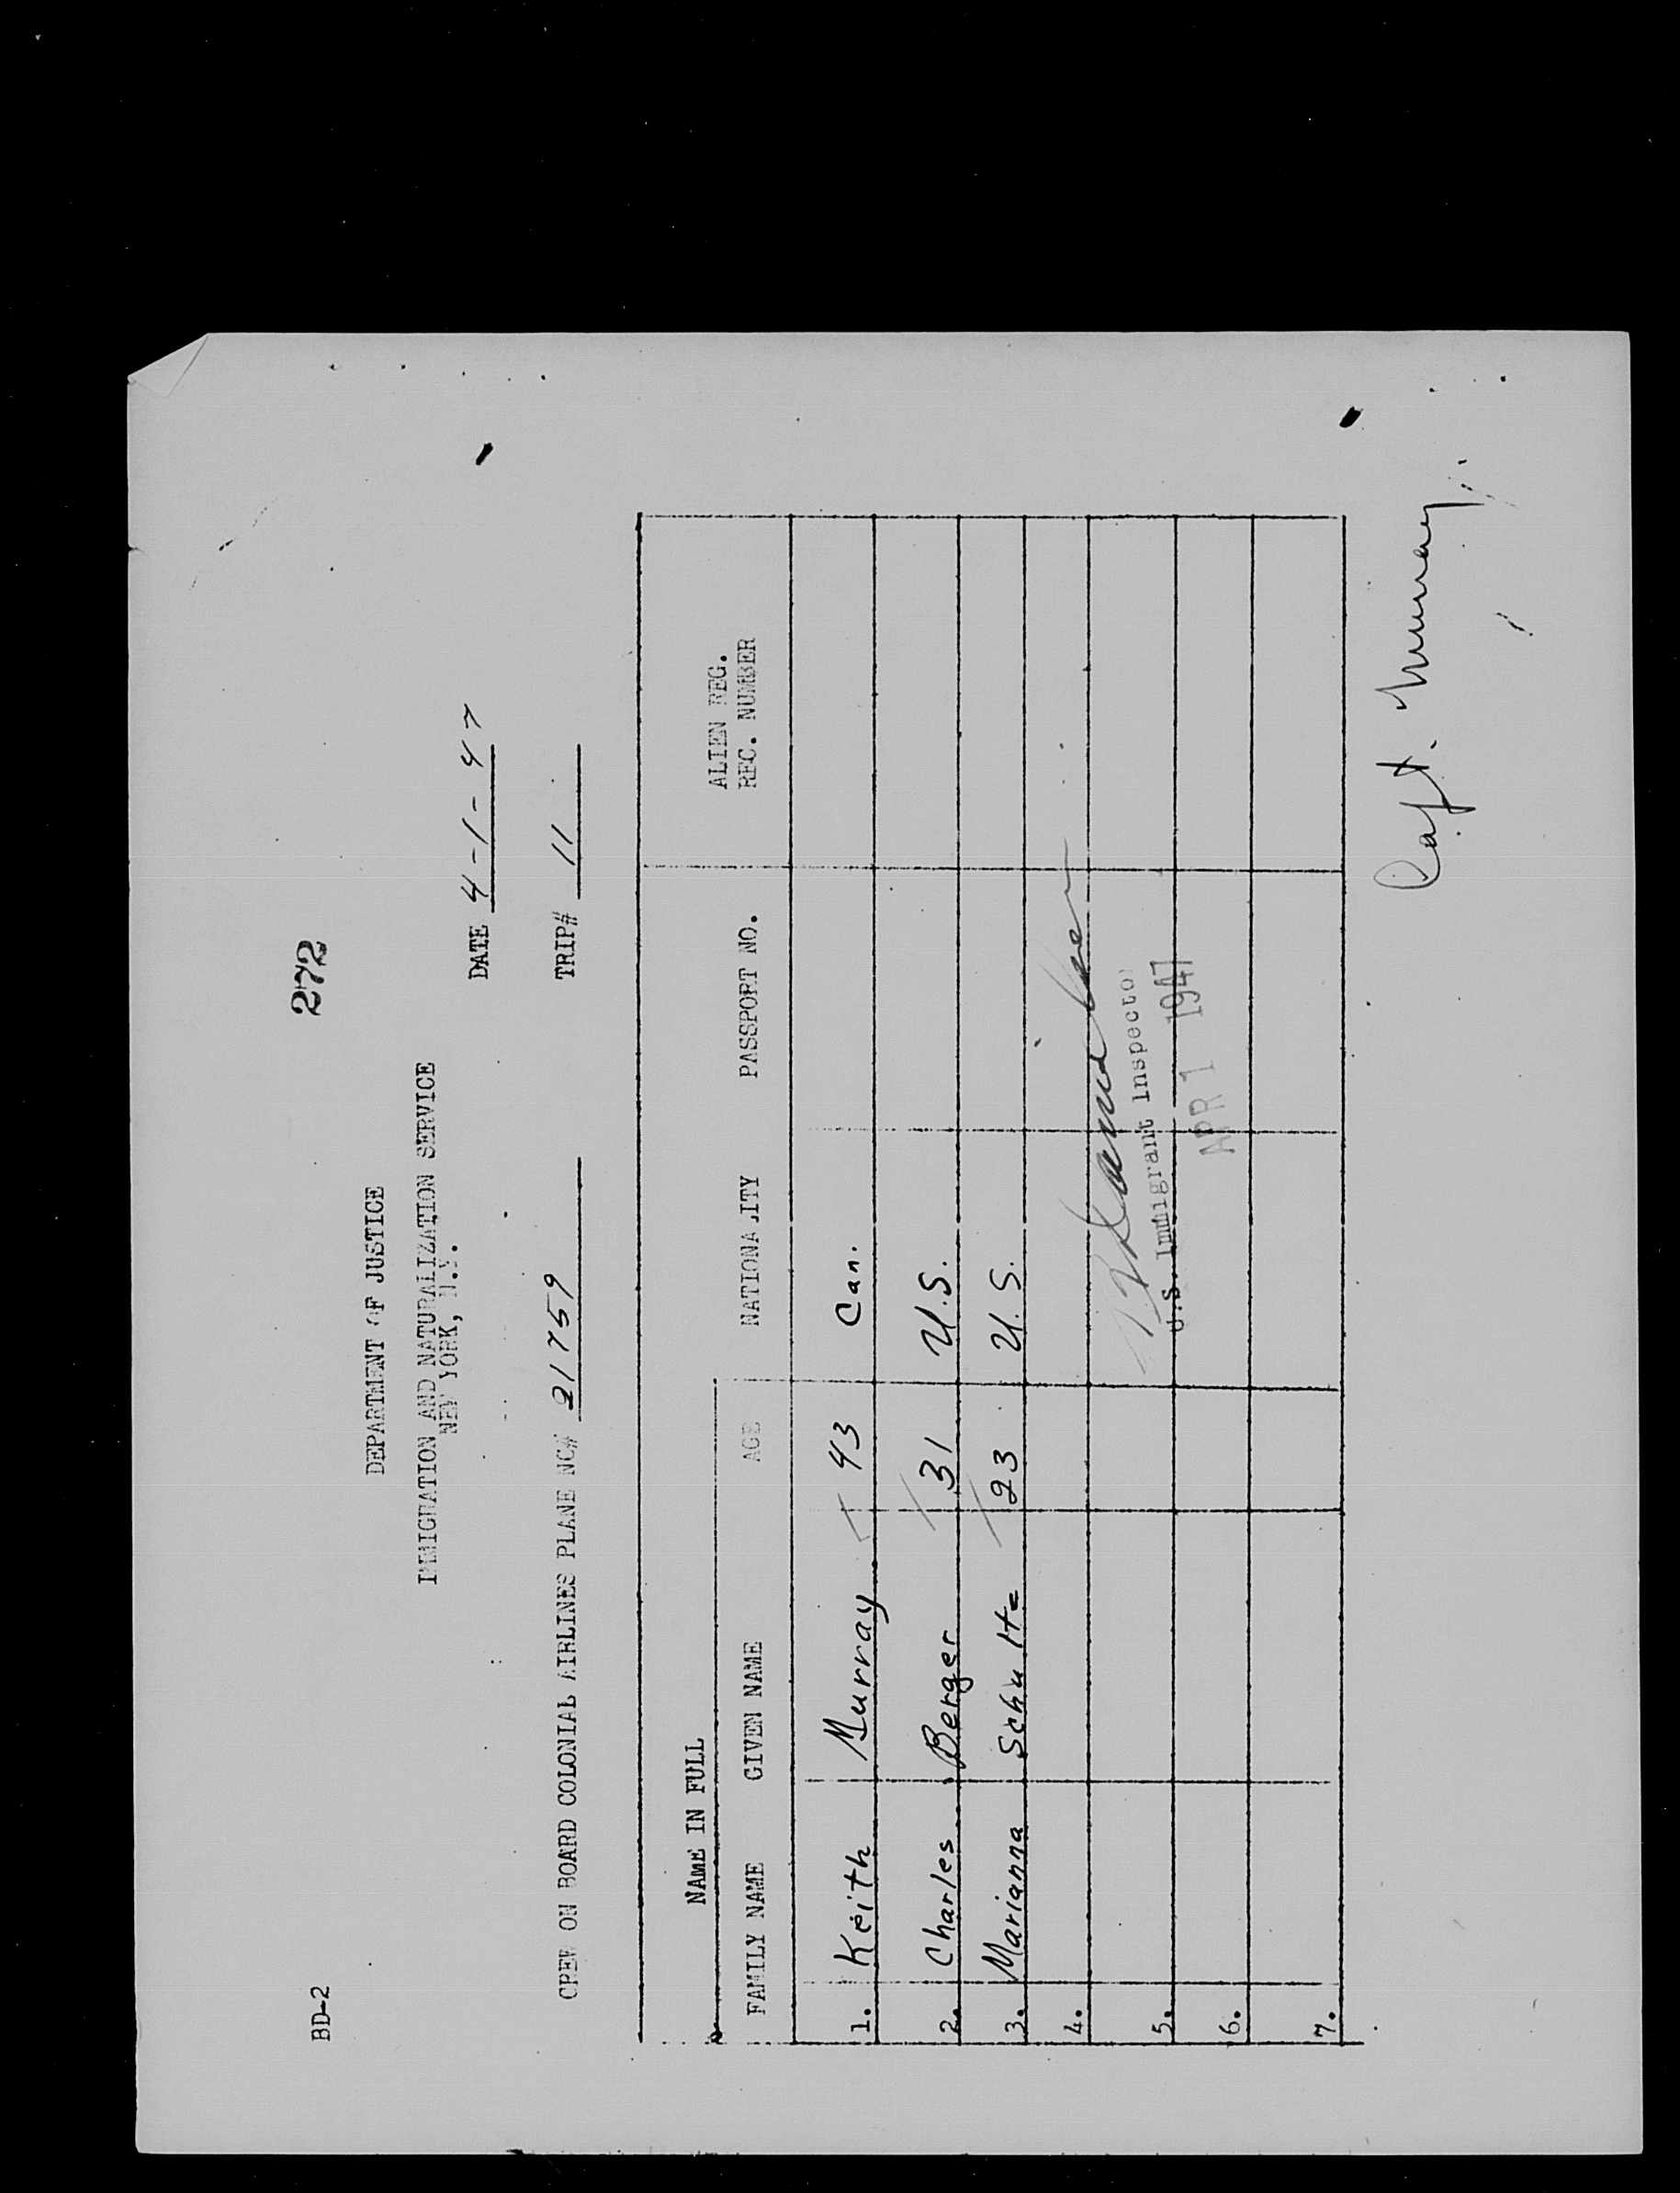 BD-2
272
DEPARTMENT OF JUSTICE
IMMIGRATION AND NATURALIZATION SERVICE
NEW YORK, N.Y.
DATE 4-1-47
CREW ON BOARD COLONIAL AIRLINES PLANE NC# 21759 TRIP# 11
NAME IN FULL
FAMILY NAME GIVEN NAME AGE NATIONALITY PASSPORT NO. ALIEN REG. REC. NUMBER
1. Keith Murray 43 Can.
2. Charles Berger 31 U.S.
3. Marianna Schulte 23 U.S.
4.
U.S. Immigrant Inspector
5.
APR 1 1947
6.
7.
Capt. Murray